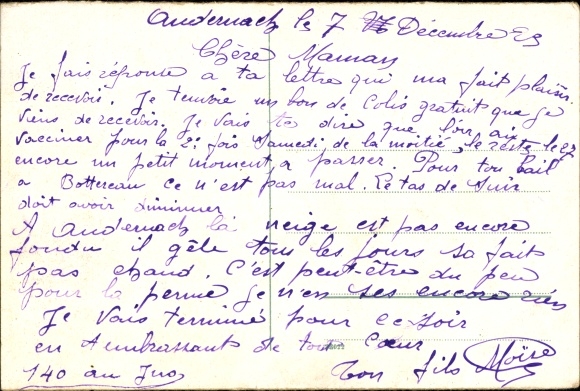 Andernach le 7 Décembre 59
Chère Maman
Je fais réponse a ta lettre qui ma fait plaisir
de recevoir. Je tenvoie un bon de Colis gratuit que je
viens de recevoir. Je vais te dire que l'on
vacciner pour la 2e fois Samedi de la moitié, le reste le 27
encore un petit moment a passer. Pour ton bail
a Bottereau ce n'est pas mal. Le tas de
doit avoir diminuer
A Andernach la neige est pas encore
fondu il gèle tous les jours sa fait
pas chaud. C'est peut-être du peu
pour la perme je n'en ses encore rien
Je vais terminé pour ce soir
en tembrassant de tout Cœur
140 au Jus Ton fils Moïse